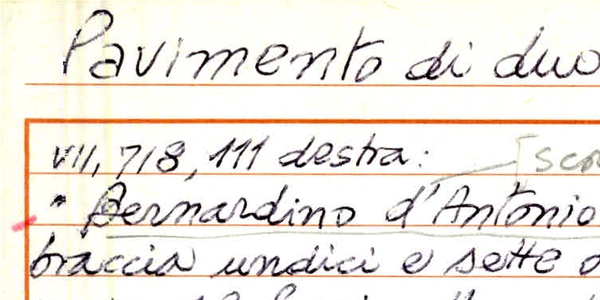 Pavimento di duo
VII, 7/8, 111 destra: [sco
" Bernardino d'Antonio
braccia undici e sette